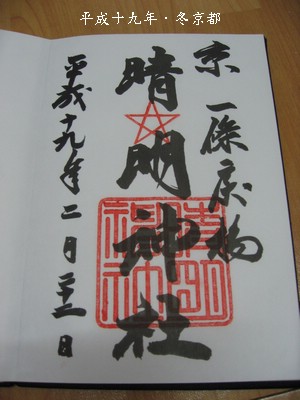 平成十九年·冬京都
京 一條戻橋
晴明神社
平成十九年二月二十二日
晴明神社